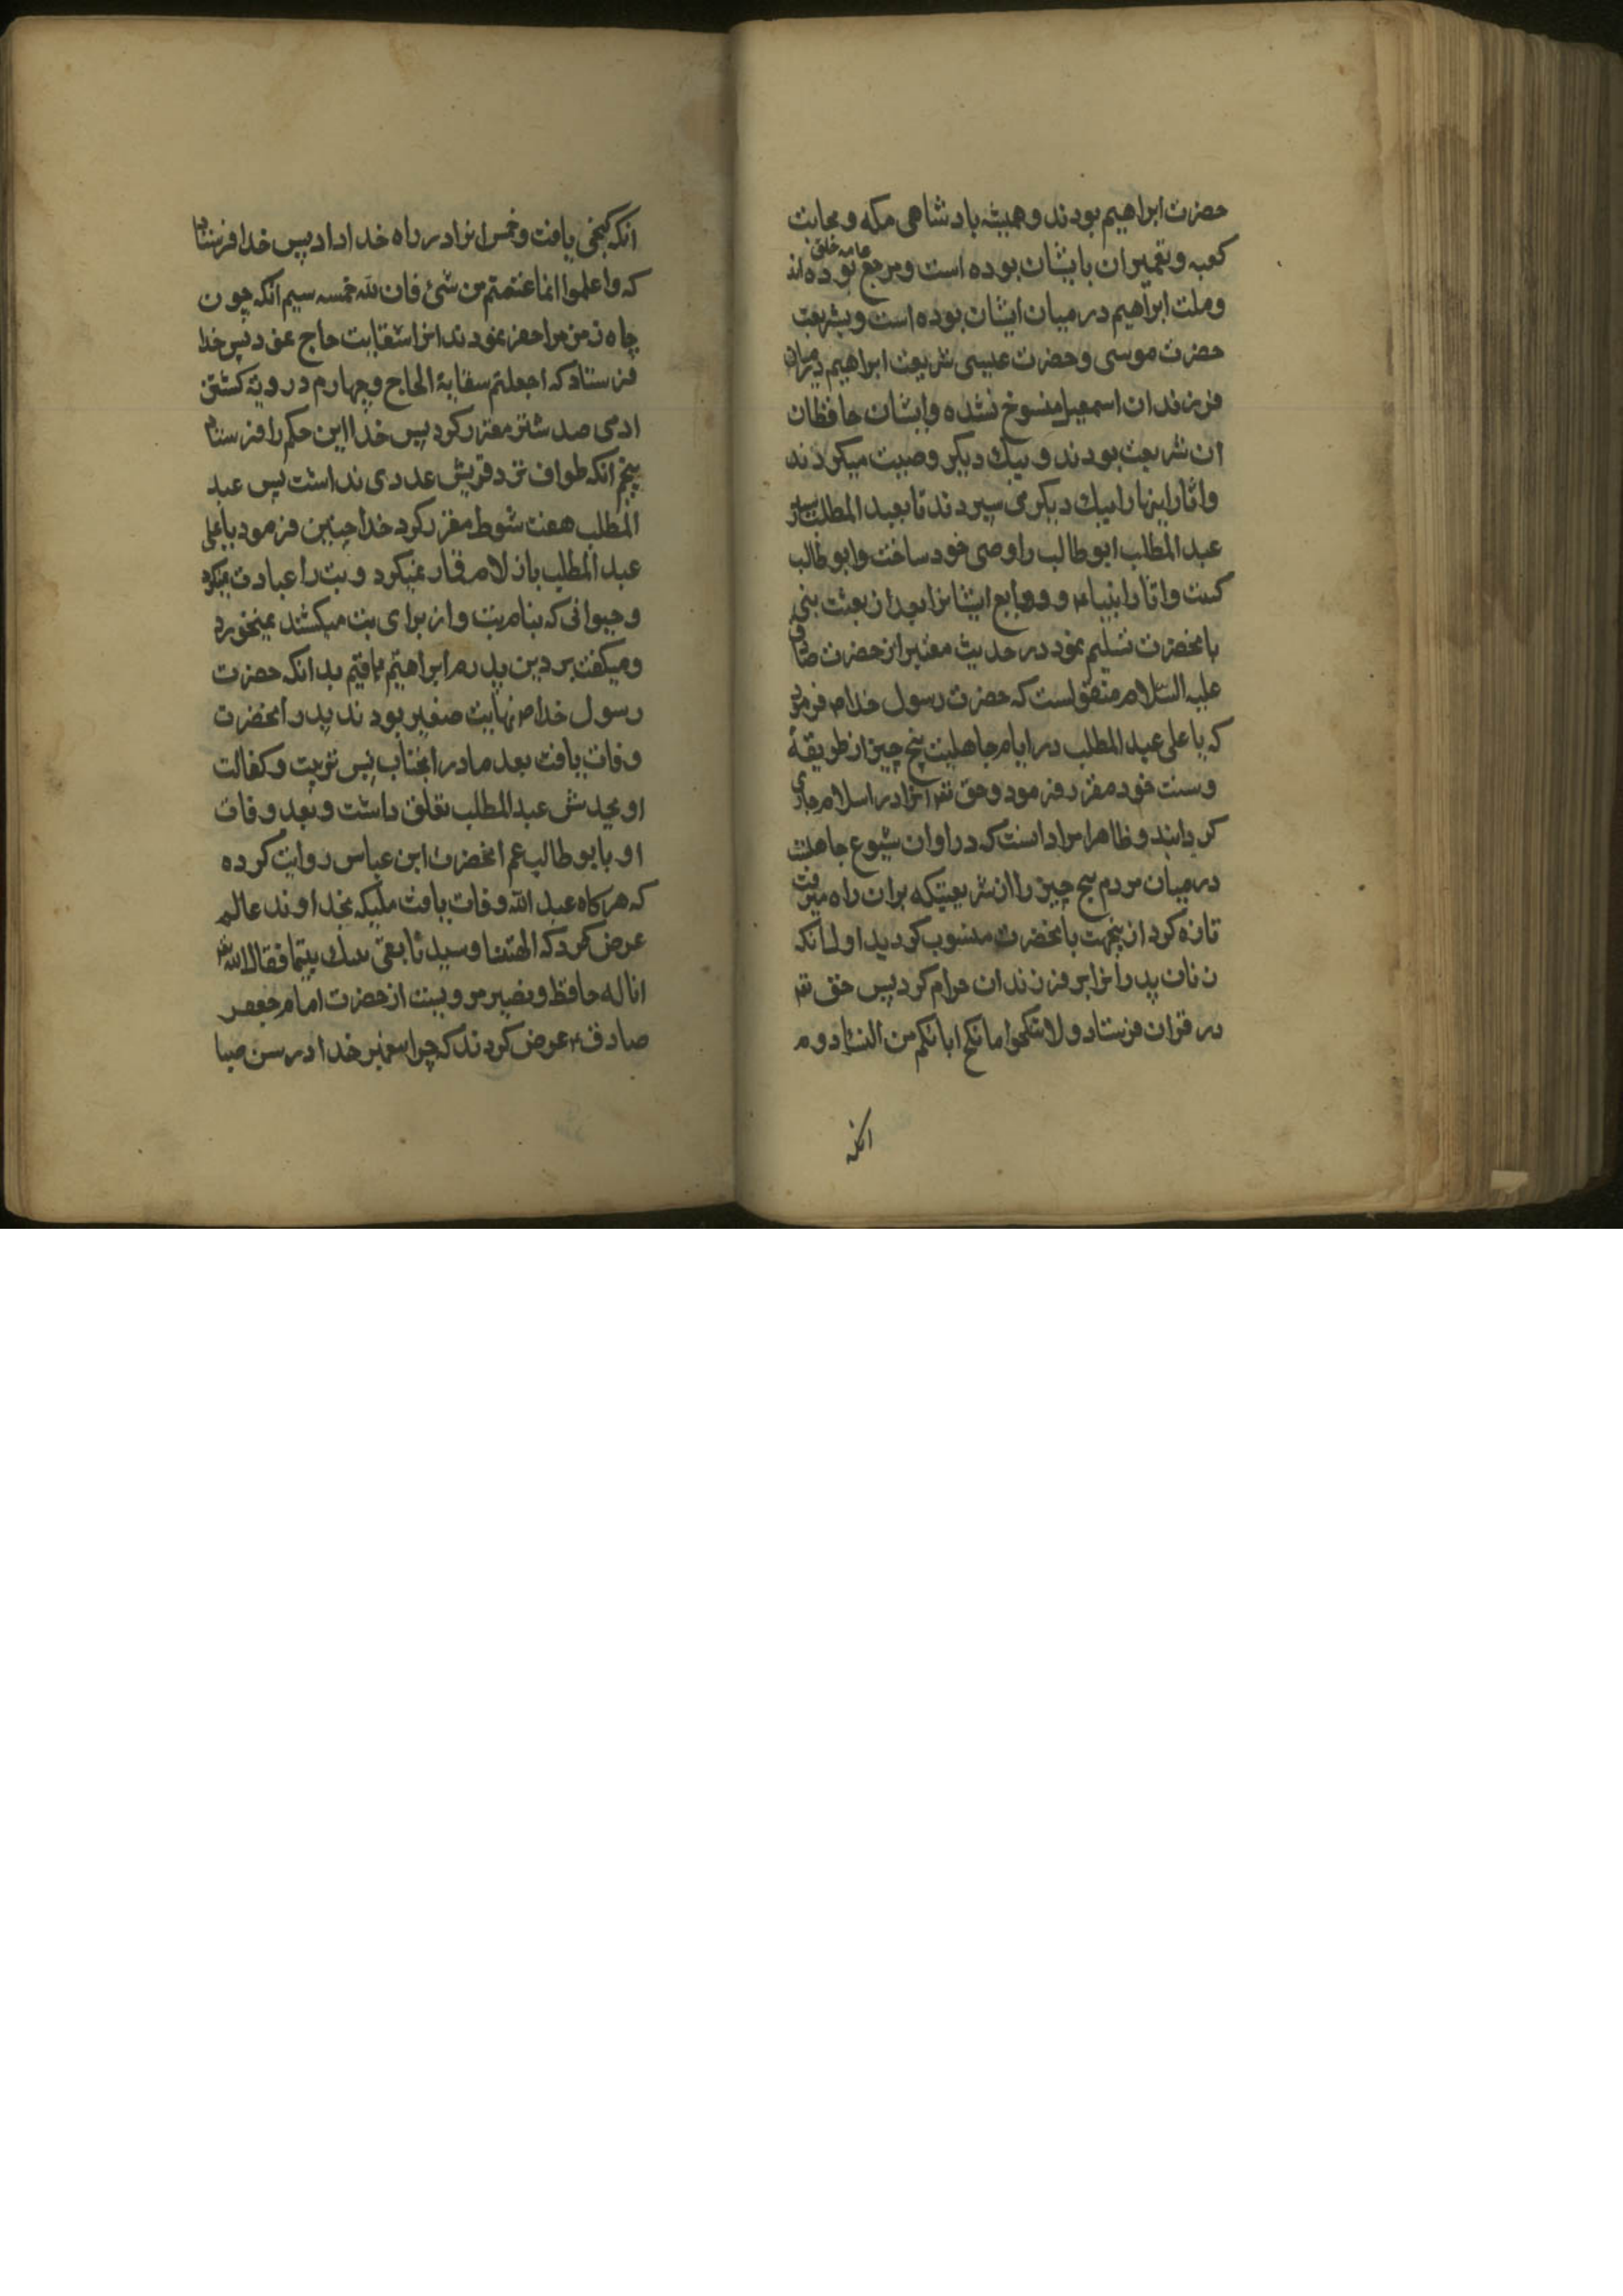 حضرت ابراهیم بودند و همیشه بادشاهی مکه و حجابت
کعبه و تعمیر ان بایشان بوده است و مرجع عامه خلق بوده اند
و ملت ابراهیم در میان ایشان بوده است و بشریعت
حضرت موسی و حضرت عیسی شریعت ابراهیم در میان
فرزندان اسمعیل منسوخ نشده و ایشان حافظان
ان شریعت بودند و بیک دیکر وصیت میکردند
و اثار انبیا را بیک دیکر می سپردند تا بعبد المطلب
عبد المطلب ابو طالب را وصی خود ساخت و ابو طالب
کتب و اثار انبیاء و ودایع ایشانرا بعد از بعثت
بانحضرت تسلیم نمود در حدیث معتبر از حضرت صادق
علیه السلام منقولست که حضرت رسول خدا ص فرمود
که یا علی عبد المطلب در ایام جاهلیت پنج چیز از طریقهٔ
و سنت خود مقرر فرمود و حق تع انرا در اسلام جاری
کردانید و ظاهرا مراد است که در اوان شیوع جاهلیت
در میان مردم پنج چیز را از شریعتیکه بران راه میرفت
تازه کرد ازینجهت بانحضرت منسوب کردید اول انکه
زنان پدرانرا بر فرزندان حرام کرد پس حق تع
در قران فرستاد و لا تنکحوا ما نکح اباؤکم من النساء دوم
انکه
انکه کنجی یافت و خمس انرا در راه خدا داد پس خدا فرستاد
که واعلموا انما غنمتم من شئ فان لله خمسه سیم انکه چون
چاه زمزم را حفر نمودند انرا سقایت حاج نمود پس خدا
فرستاد که اجعلتم سقایة الحاج و چهارم در دیهٔ کشتن
ادمی صد شتر مقرر کرد پس خدا این حکم را فرستاد
پنجم انکه طواف نزد قریش عددی نداشت پس عبد
المطلب هفت شوط مقرر کرد خدا چنین فرمود یا علی
عبد المطلب بازلام قمار نمیکرد و بت را عبادت نمیکرد
و حیوانی که بنام بت و از برای بت میکشتند نمیخورد
و میکفت بر دین پدرم ابراهیم باقیم بدانکه حضرت
رسول خدا ص نهایت صغیر بودند پدر انحضرت
وفات یافت بعد مادر انجناب پس تربیت و کفالت
او بجدش عبد المطلب تعلق داشت و بعد وفات
او بابو طالب عم انحضرت ابن عباس روایت کرده
که هرکاه عبد الله وفات یافت ملیکه بخداوند عالم
عرض کرد که الهنا و سیدنا بقی نبیک یتیما فقال الله تع
انا له حافظ و نصیر مرویست از حضرت امام جعفر
صادق ع عرض کردند که چرا پیغمبر خدا در سن صبا